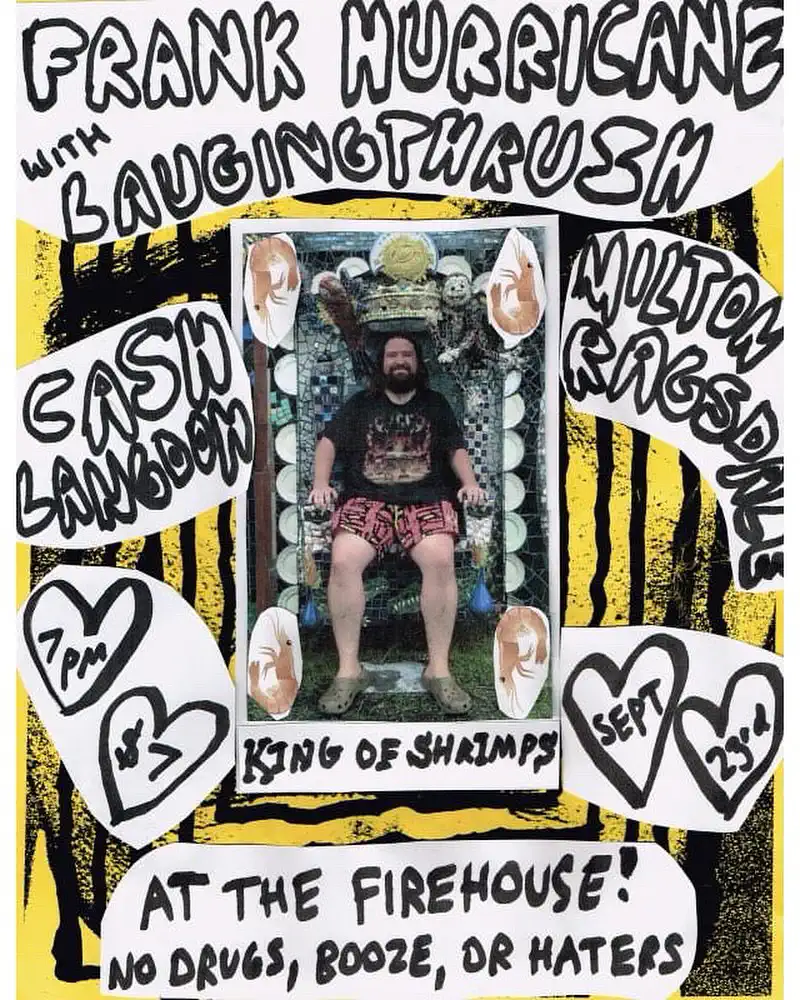 FRANK HURRICANE
WITH
LAUGINGTHRUSH
CASH
LANGDON
MILTON
RAGSDALE
7
PM
$7
SEPT
23rd
KING OF SHRIMPS
AT THE FIREHOUSE!
NO DRUGS, BOOZE, OR HATERS